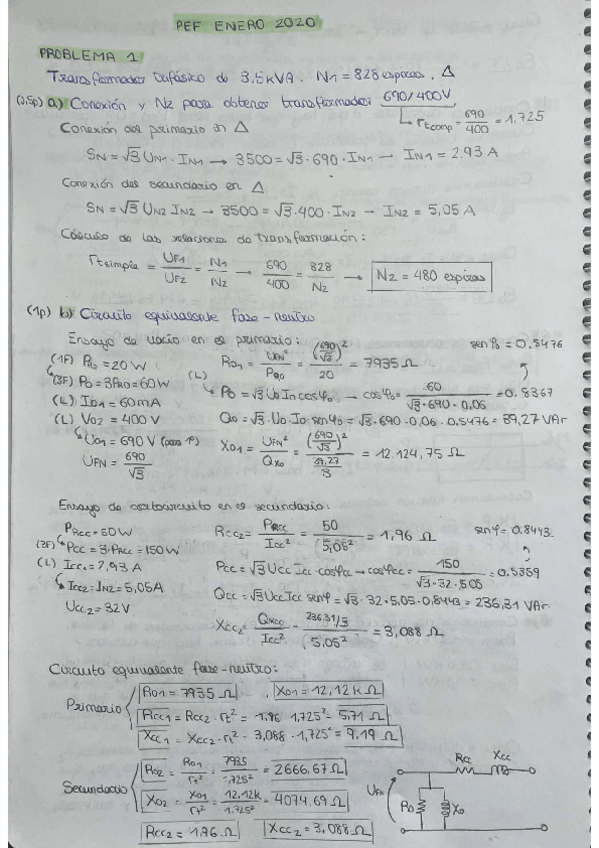 PEF ENERO 2020
PROBLEMA 1
Transformador trifásico de 3,5kVA. N1 = 828 espiras, Δ
(0.5p) a) Conexión y N2 para obtener transformador 690/400V
rtcomp = 690/400 = 1,725
Conexión del primario en Δ
SN = √3 UN1 · IN1 → 3500 = √3 · 690 · IN1 → IN1 = 2,93 A
Conexión del secundario en Δ
SN = √3 UN2 IN2 → 3500 = √3 · 400 · IN2 → IN2 = 5,05 A
Cálculo de las relaciones de transformación:
rtsimple = UF1/UF2 = N1/N2 → 690/400 = 828/N2 → N2 = 480 espiras
(1p) b) Circuito equivalente fase-neutro
Ensayo de vacío en el primario:
(1F) PR0 = 20W
(3F) P0 = 3PR0 = 60W
(L) I01 = 60mA
(L) V02 = 400V
U01 = 690V (para 1º)
UFN = 690/√3
R01 = UFN²/PR0 = (690/√3)²/20 = 7935 Ω
sen φ0 = 0.5476
(L) P0 = √3 U0 I0 cosφ0 → cosφ0 = 60/√3·690·0,06 = 0.8367
Q0 = √3 · U0 · I0 senφ0 = √3 · 690 · 0,06 · 0.5476 = 39,27 VAr
X01 = UFN²/QX0 = (690/√3)²/39,27/3 = 12.124,75 Ω
Ensayo de cortocircuito en el secundario:
PRcc = 50W
(3F) Pcc = 3·PRcc = 150W
(L) Icc1 = 2,93A
Icc2 = IN2 = 5,05A
Ucc2 = 32V
Rcc2 = PRcc/Icc² = 50/(5,05²) = 1,96 Ω
sen φ = 0.8443
Pcc = √3 Ucc Icc cosφcc → cosφcc = 150/√3·32·5.05 = 0.5359
Qcc = √3 Ucc Icc senφ = √3 · 32 · 5,05 · 0.8443 = 236,31 VAr
Xcc2 = QXcc/Icc² = 236,31/3/(5,05² = 3,088 Ω
Circuito equivalente fase-neutro:
Primario
R01 = 7935 Ω , X01 = 12,12 k Ω
Rcc1 = Rcc2 · rt² = 1,96 · 1,725² = 5,71 Ω
Xcc1 = Xcc2 · rt² = 3,088 · 1,725² = 9,19 Ω
Secundario
R02 = R01/rt² = 7935/1,725² = 2666,67 Ω
X02 = X01/rt² = 12,12k/1.725² = 4074,69 Ω
Rcc2 = 1,96 Ω Xcc2 = 3,088 Ω
Rcc Xcc
UFN
R0 X0